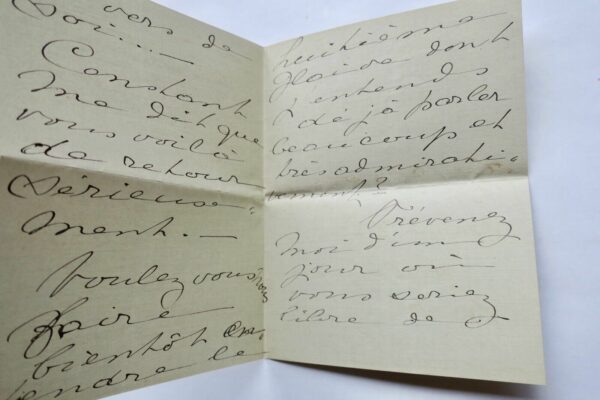 vers de
soi...—
Constant
me dit que
vous voilà
de retour
sérieuse-
ment.—
Voulez vous nous
faire
bientôt en-
tendre le
huitième
Glaive dont
j'entends
déjà parler
beaucoup et
très admirati-
vement?
Prévenez
moi d'un
jour où
vous seriez
libre de